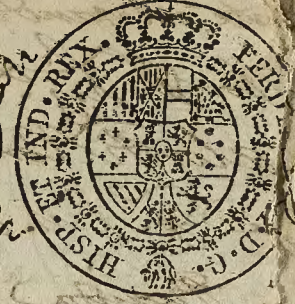 FERD
D. G. HISP. ET IND. REX.